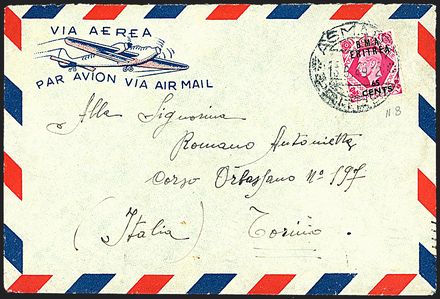 VIA AEREA
PAR AVION VIA AIR MAIL
B.M.A.
ERITREA
65
CENTS
118
Alla Signorina
Romano Antonietta
Corso Orbassano N° 197
(Italia) Torino